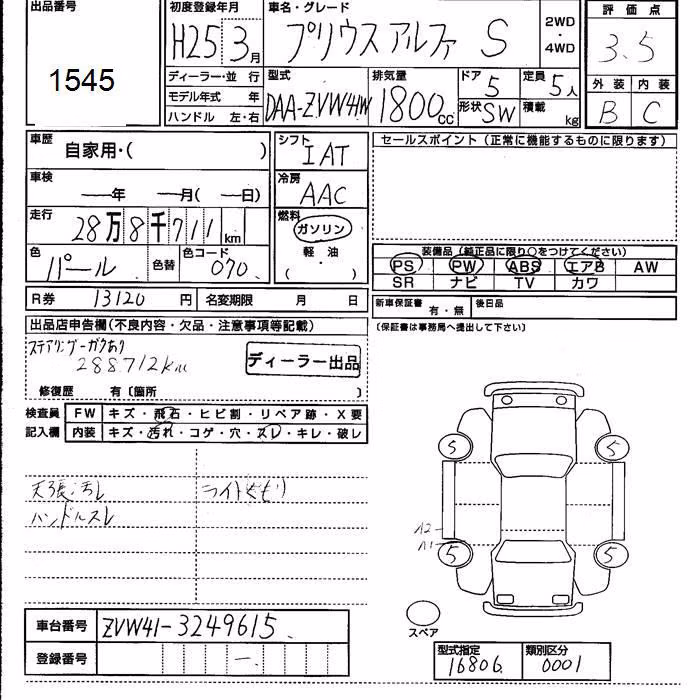 出品番号
1545
初度登録年月
H25 3月
車名・グレード
プリウス アルファ S
2WD
・
4WD
評価点
3.5
外装 内装
B C
ディーラー・並行
モデル年式 年
ハンドル 左・右
型式
DAA-ZVW41W
排気量
1800cc
ドア
5
形状 SW
定員
5人
積載
kg
車歴
自家用・( )
車検
――年 ――月(――日)
走行
28万8千711km
色
パール
色替
色コード
070.
シフト
IAT
冷房
AAC
燃料
ガソリン
軽・油
( ・ )
セールスポイント(正常に機能するものに限ります)
装備品(純正品に限り○をつけてください)
PS PW ABS エアB AW
SR ナビ TV カワ
R券 13120 円 名変期限 月 日
新車保証書 有・無 後日品
(保証書は事務局へ提出して下さい)
出品店申告欄(不良内容・欠品・注意事項等記載)
ステアリングーガタあり
288712km
ディーラー出品
修復歴 有〔箇所 〕
検査員 FW キズ・飛石・ヒビ割・リペア跡・X要
記入欄 内装 キズ・汚れ・コゲ・穴・スレ・キレ・破レ
天張汚レ
ライトくもり
ハンドルスレ
5 5
A2
A1
5 5
スペア
車台番号 ZVW41-3249615
登録番号 ―
型式指定
16806
類別区分
0001